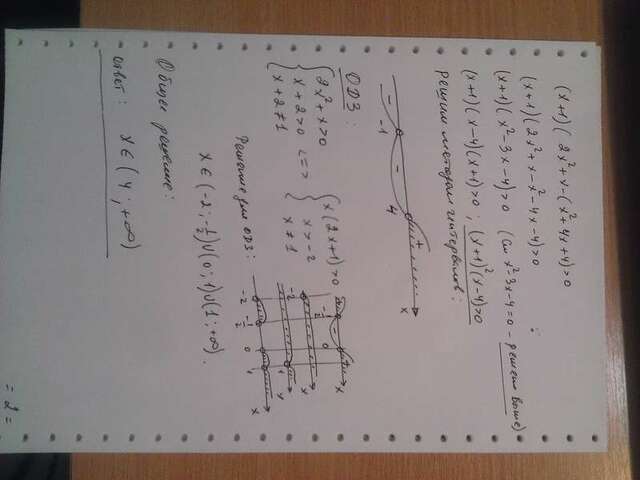 (x+1)(2x²+x-(x²+4x+4)>0
(x+1)(2x²+x-x²-4x-4)>0
(x+1)(x²-3x-4)>0 (см x²-3x-4=0 - решен выше)
(x+1)(x-4)(x+1)>0 ; (x+1)²(x-4)>0
Решим методом интервалов:
- -1 - 4 + x
ОДЗ:
{ 2x²+x>0 { x(2x+1)>0
{ x+2>0 <=> { x>-2
{ x+2≠1 { x≠1
-½ 0 x
-2 x
1 x
-2 -½ 0 1 x
Решение для ОДЗ:
x∈(-2;-½)∪(0;1)∪(1;+∞).
Общее решение:
Ответ: x∈(4;+∞)
= 2 =